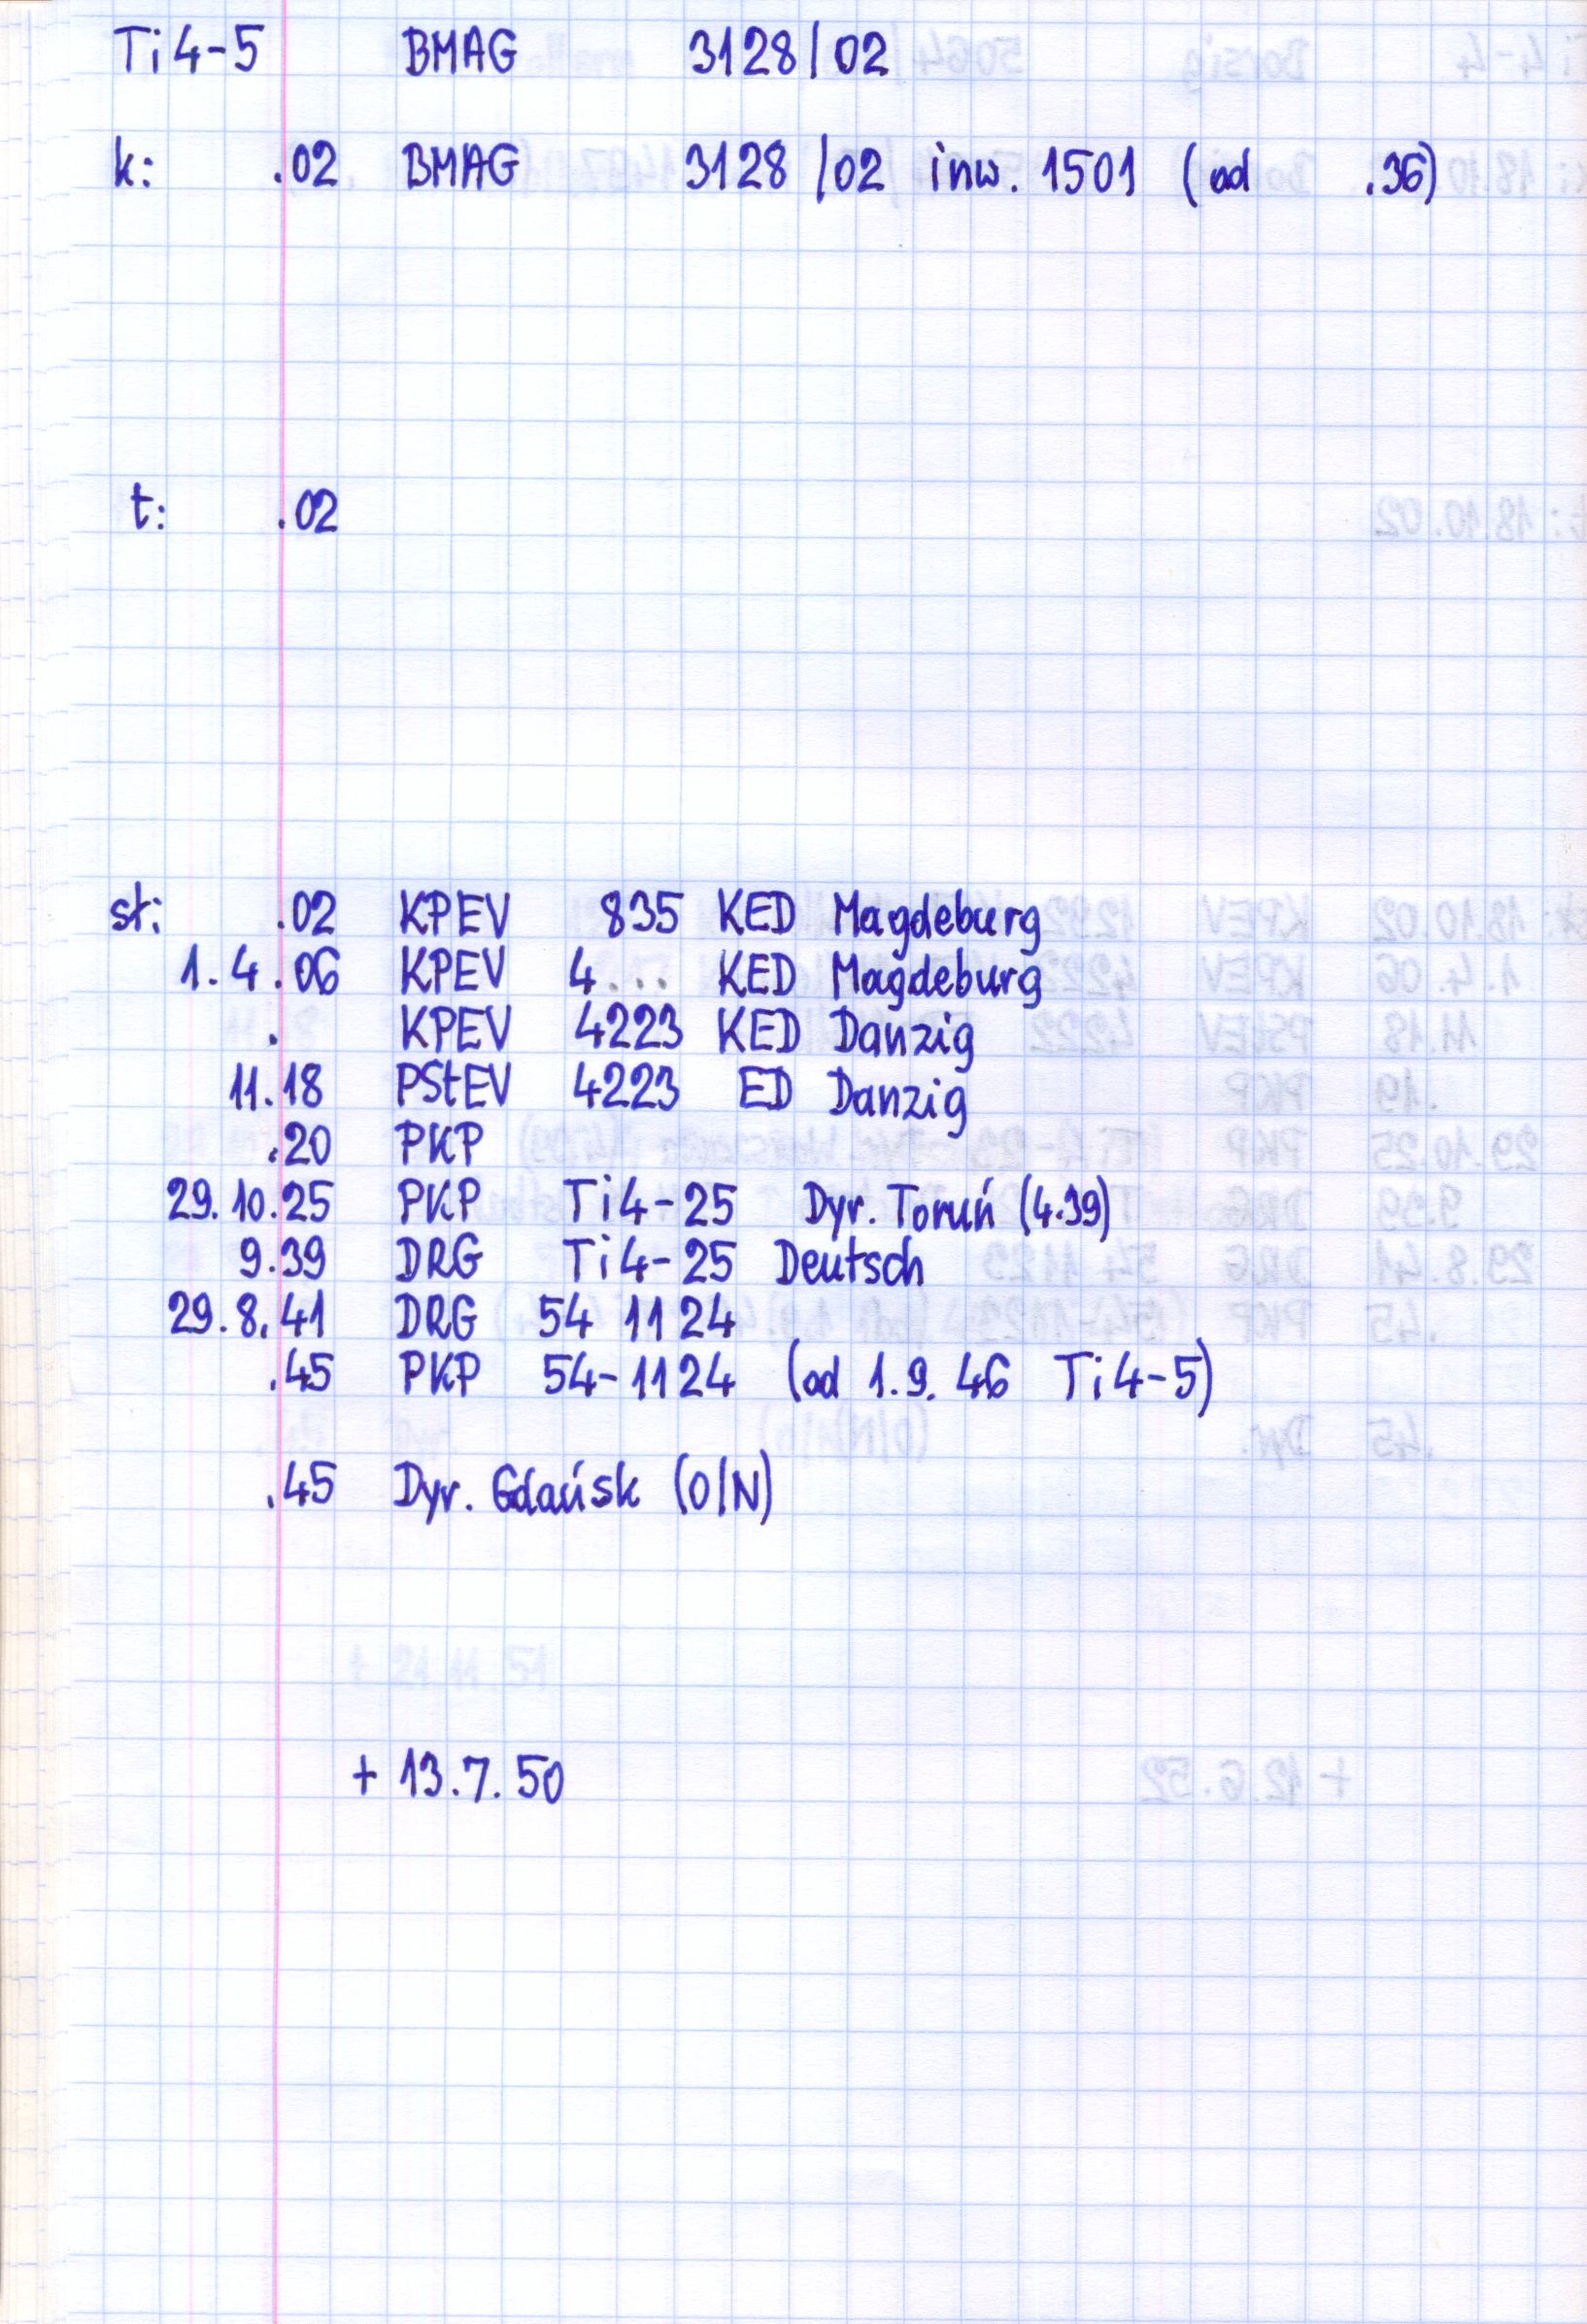 Ti4-5 BMAG 3128/02
k: .02 BMAG 3128/02 inw. 1501 (od .36)
t: .02
st: .02 KPEV 835 KED Magdeburg
1.4.06 KPEV 4... KED Magdeburg
. KPEV 4223 KED Danzig
11.18 PStEV 4223 ED Danzig
.20 PKP
29.10.25 PKP Ti4-25 Dyr. Toruń (4.39)
9.39 DRG Ti4-25 Deutsch
29.8.41 DRG 54 1124
.45 PKP 54-1124 (od 1.9.46 Ti4-5)
.45 Dyr. Gdańsk (O/N)
+ 13.7.50